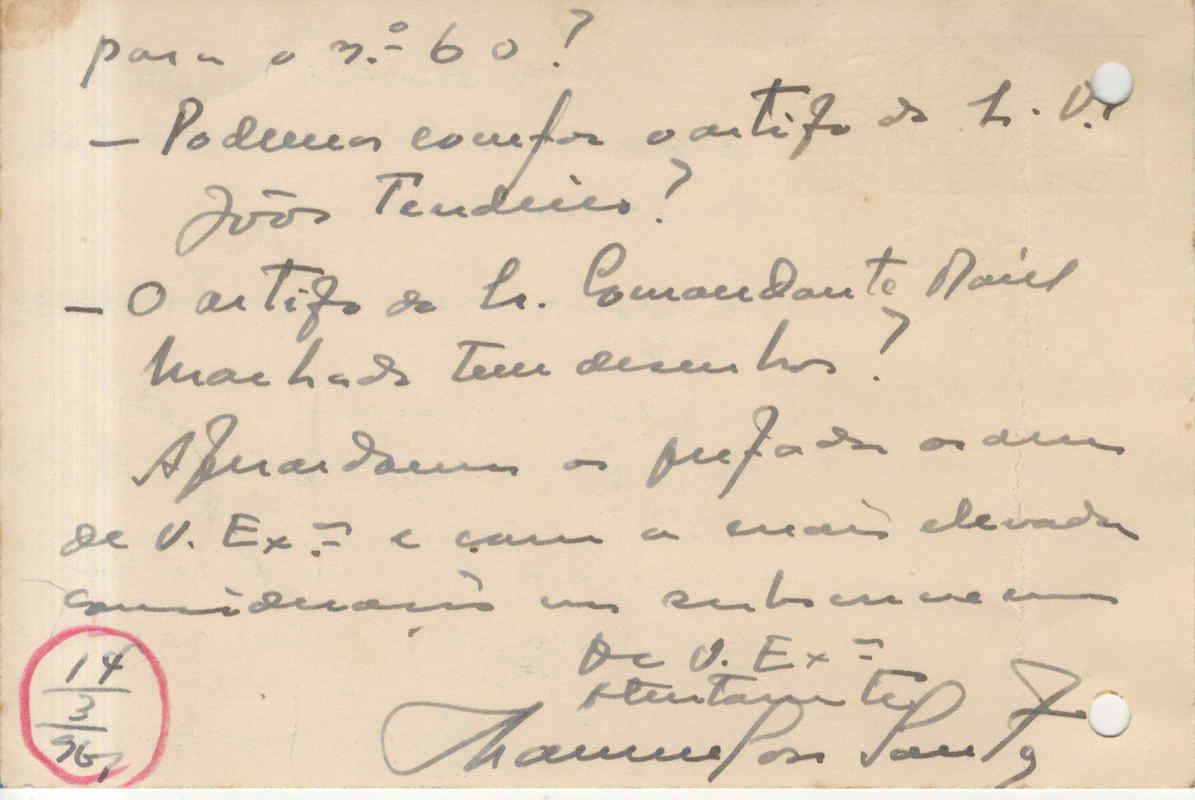 para o n.º 60?
— Podemos compor o artigo do Sr. Dr.
João Tendeiro?
— O artigo do Sr. Comandante
Machado tem desenhos?
Aguardamos as prezadas ordens
de V. Ex.ª e com a mais elevada
consideração nos subscrevemos
De V. Ex.ª
Atentamente
14
3